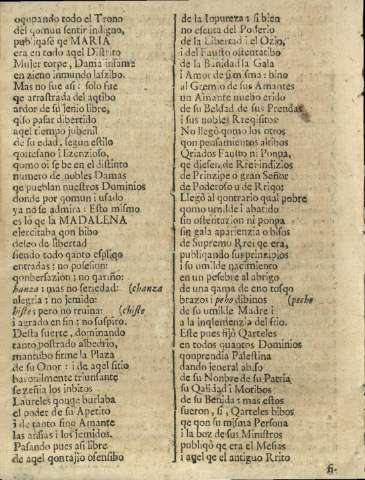 oqupando todo el Trono
del qomun sentir indigno,
publiqase qe MARIA
era en todo aqel Distrito
Mujer torpe, Dama infame
en zieno inmundo laszibo.
Mas no fue asi: solo fue
qe arrastrada del aqtibo
ardor de su jenio libre,
qiso pasar dibertido
aqel tiempo jubenil
de su edad, segun estilo
qortesano lizenzioso,
qomo oi se be en el distinto
numero de nobles Damas
qe pueblan nuestros Dominios
donde por qomun i usado
ya no se admira: Esto mismo
es lo qe la MADALENA
ejercitaba qon bibo
deseo de libertad
siendo todo qanto espliqo
entradas: no posesion:
qonbersazion: no qariño:
hanza: mas no seriedad: (chanza
alegria: no jemido:
histe: pero no ruina: (chiste
i agrado en fin: no suspiro.
Desta suerte, dominando
tanto postrado albedrio,
mantubo firme la Plaza
de su Onor: i de aqel sitio
baronilmente triunfante
se zeñia los inbitos
Laureles qonqe burlaba
el poder de su Apetito
i de tanto fino Amante
las ansias i los jemidos.
Pasando pues asi libre
de aqel qontajio ofensibo
de la Inpureza: si bien
no esenta del Poderio
de la Libertad i el Ozio,
i del Fausto ostentatibo
de la Banidad la Gala
i Amor de si misma: bino
al Gremio de sus Amantes
un Amante nuebo erido
de su Beldad de sus Prendas
i sus nobles Rreqisitos:
No llegó qomo los otros
qon pensamientos altibos
Qriados Fausto ni Ponpa,
qe diesen de Rrei indizios
de Prinzipe o gran Señor
de Poderoso u de Rriqo:
Llegó al qontrario qual pobre
qomo umilde i abatido
sin ostentazion ni ponpa
sin gala aparienzia o bisos
de Supremo Rrei qe era,
publiqando sus prinzipios
i su umilde nacimiento
en un pesebre al abrigo
de una qama de eno tosqo
brazos i peho dibinos (pecho
de su umilde Madre i
a la inqlemenzia del frio.
Este pues fijó Qarteles
en todos quantos Dominios
qonprendia Palestina
dando jeneral abiso
de su Nonbre de su Patria
su Qalidad i Motibos
de su Benida: mas estos
fueron, si, Qarteles bibos
qe qon su misma Persona
i la boz de sus Ministros
publiqó qe era el Mesias
i aqel qe el antiguo Rrito
fi-